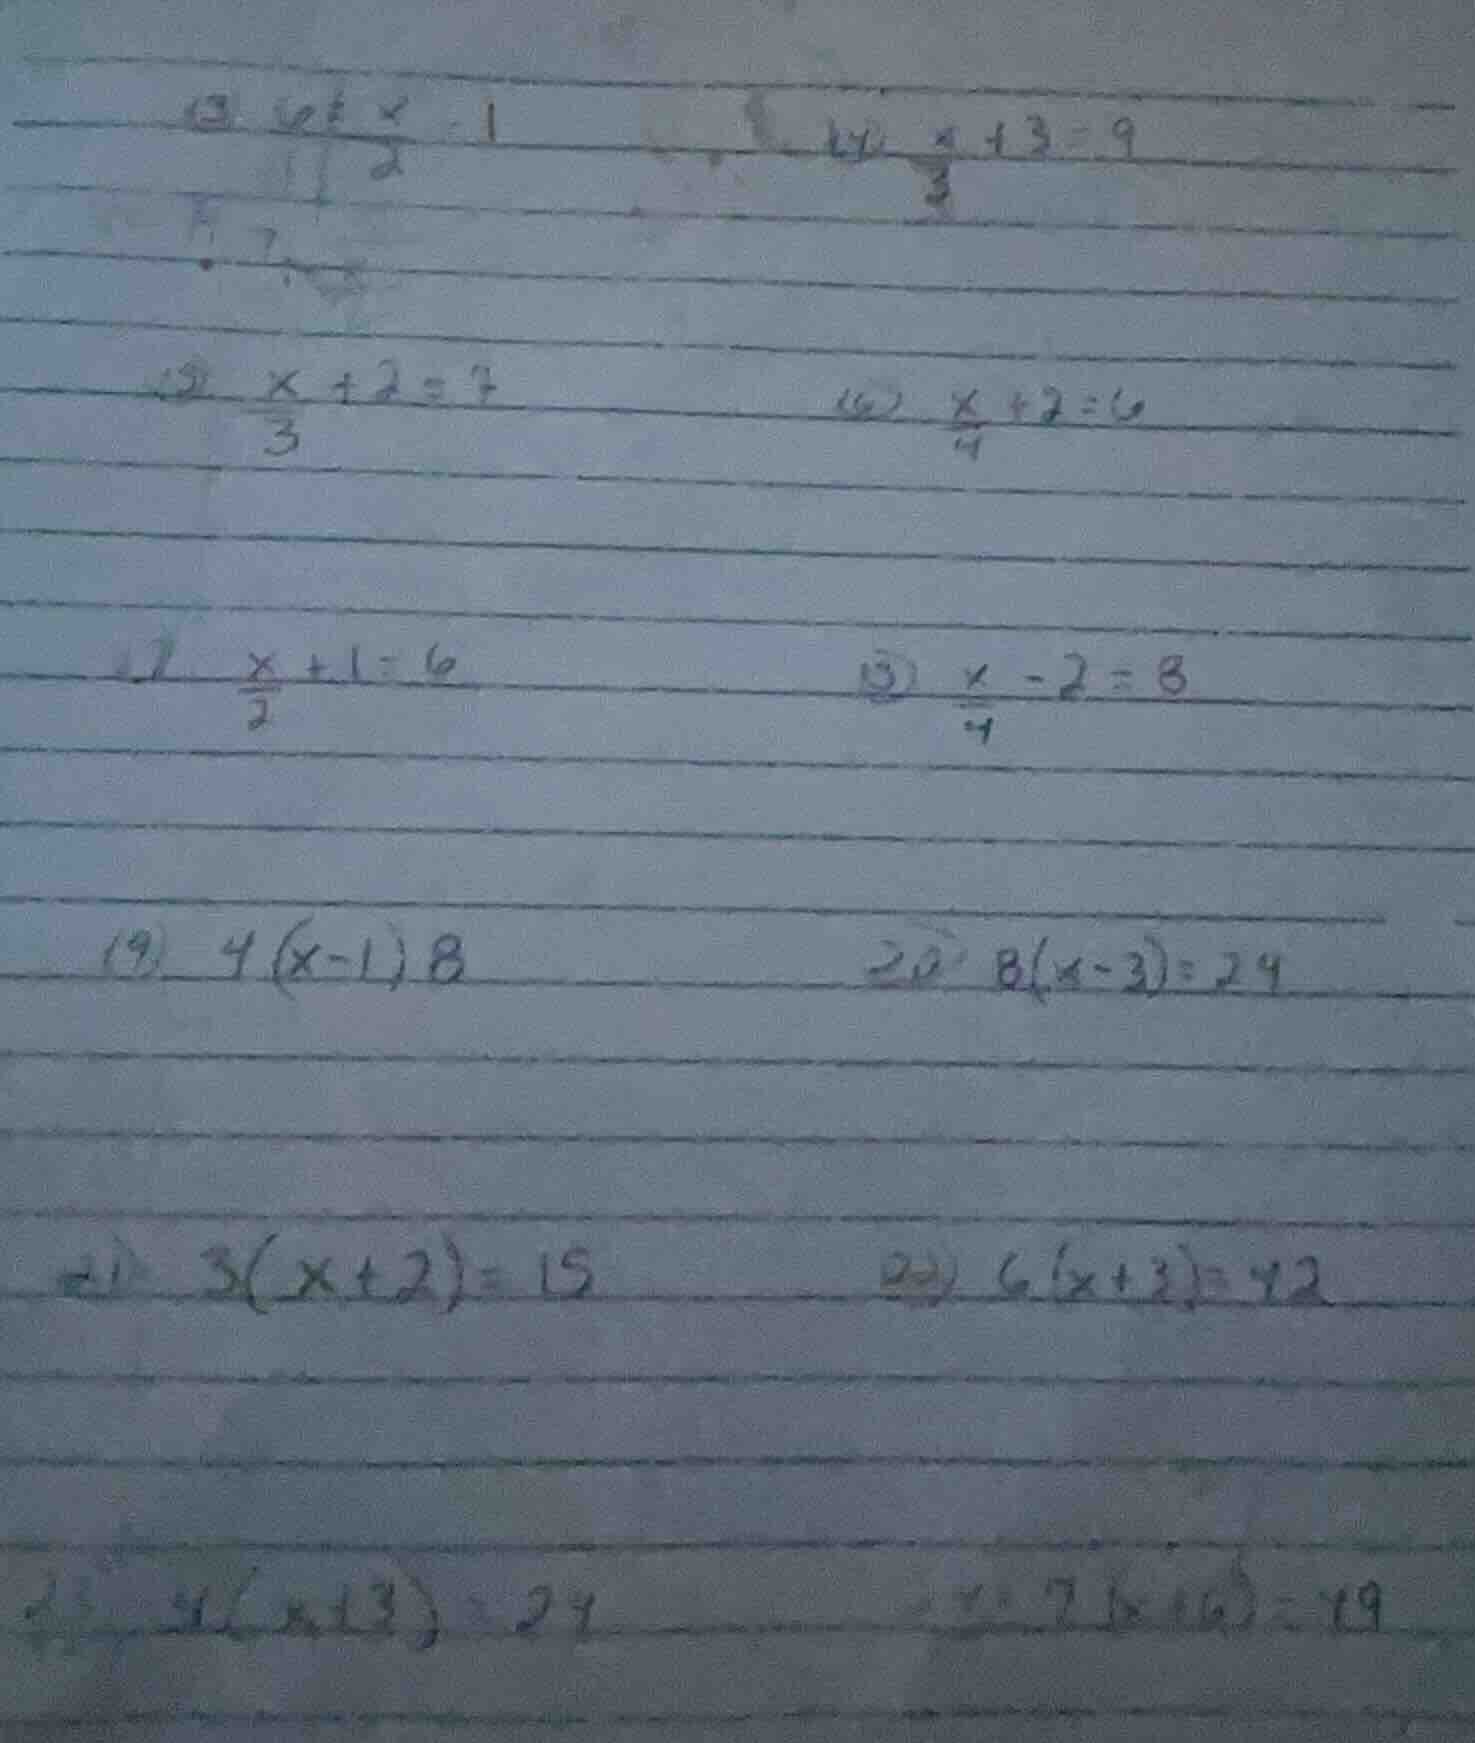 13) 6 = x/2 - 1   14) x/3 + 3 = 9
15) x/3 + 2 = 7   16) x/4 + 2 = 6
17) x/2 + 1 = 6   18) x/4 - 2 = 8
19) 4(x-1) 8   20) 8(x-3) = 24
21) 3(x+2) = 15   22) 6(x+3) = 42
23) 4(x+3) = 24   7(x+6) = 49